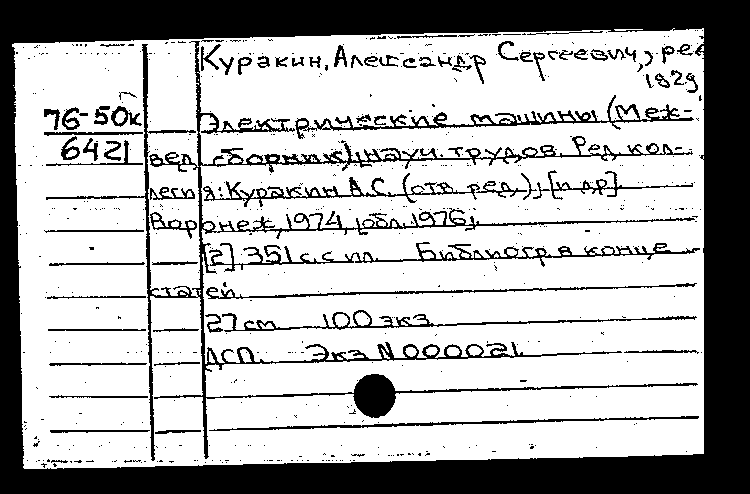 Куракин, Александр Сергеевич, ред.
1829
76-50к
6421
Электрические машины (Меж-
вед. сборник): науч. трудов. Ред. кол-
легия: Куракин А.С. (отв. ред.); [и др]
Воронеж, 1974, [обл. 1976];
[2], 351 с. с ил. Библиогр в конце
статей.
27 см 100 экз
ДСП. Экз N 000021.